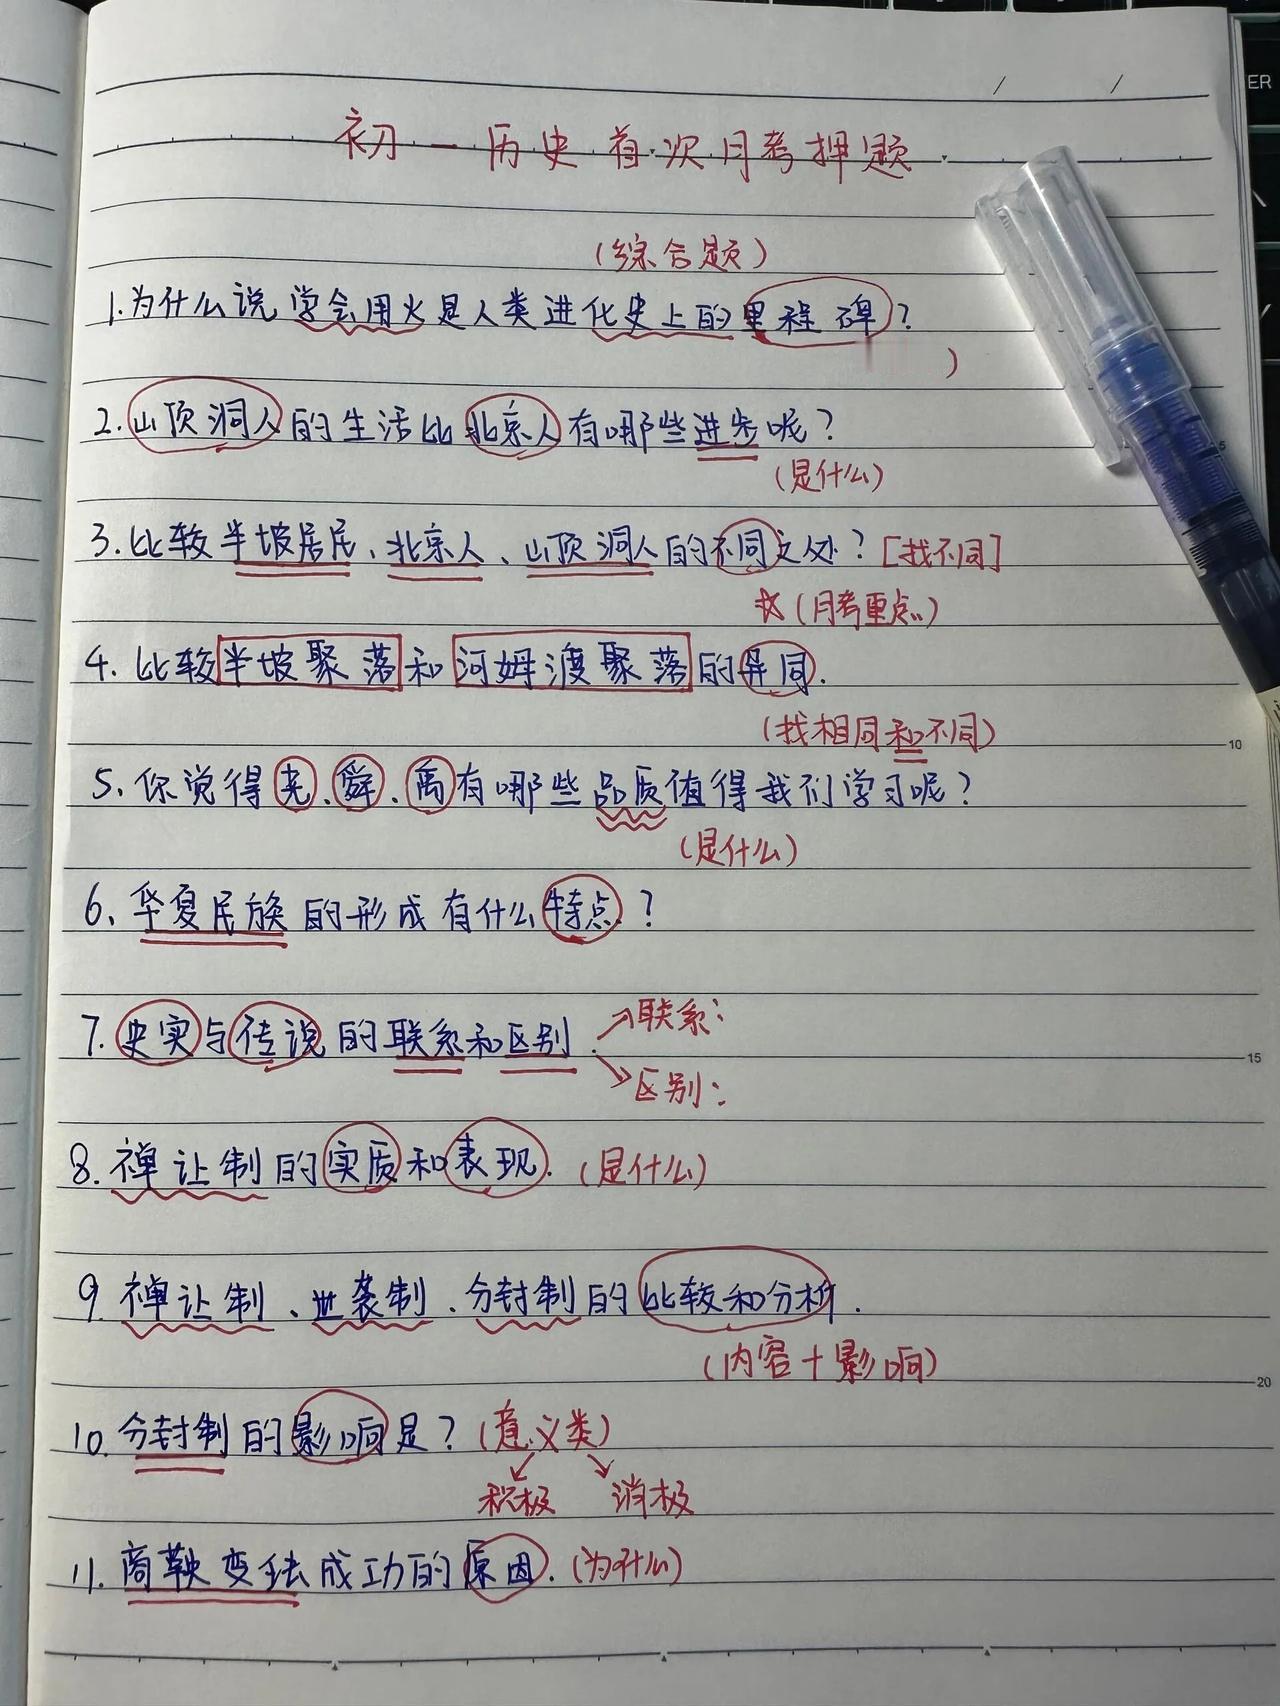 ER
初一历史首次月考押题
(综合题)
1.为什么说学会用火是人类进化史上的里程碑?
)
2.山顶洞人的生活比北京人有哪些进步呢?
(是什么)
3.比较半坡居民、北京人、山顶洞人的不同之处?[找不同]
☆(月考重点)
4.比较半坡聚落和河姆渡聚落的异同.
(找相同和不同)
10
5、你觉得尧、舜、禹有哪些品质值得我们学习呢?
(是什么)
6、华夏民族的形成有什么特点?
7.史实与传说的联系和区别.
联系:
区别:
15
8.禅让制的实质和表现.(是什么)
9.禅让制、世袭制、分封制的比较和分析.
(内容+影响)
20
10.分封制的影响是?(意义类)
积极 消极
11.商鞅变法成功的原因.(为什么)